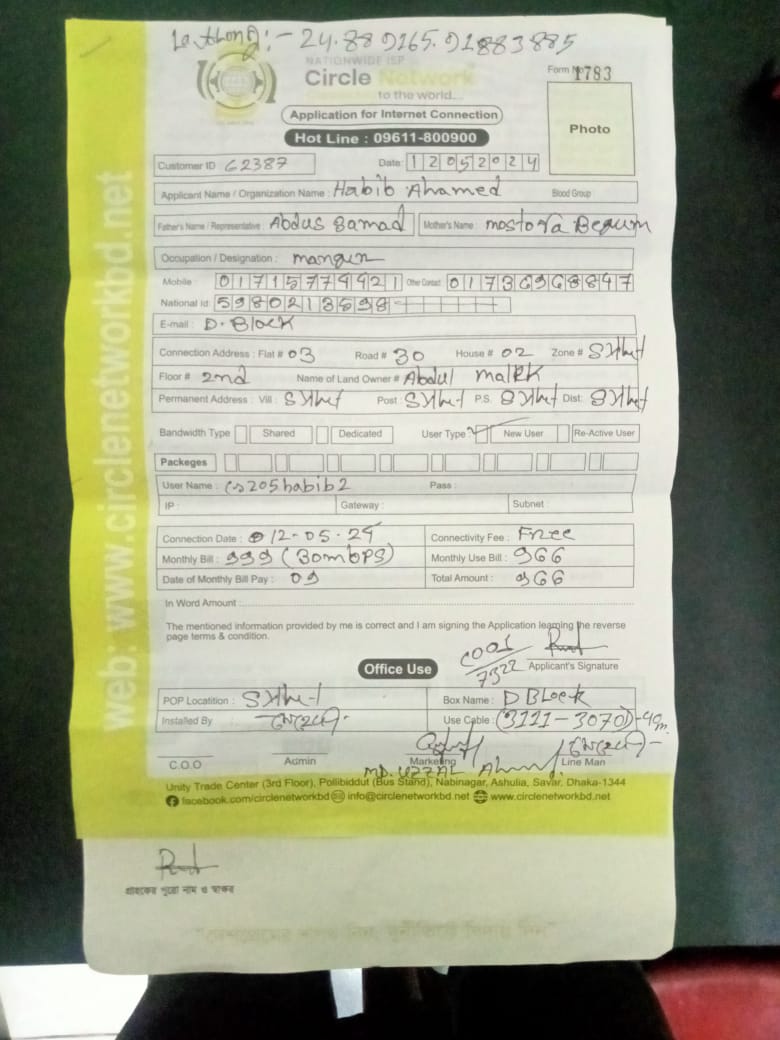 24.889265.91883885
NATIONWIDE ISP
Circle Network
to the world...
Form No 1783
Application for Internet Connection
Photo
Hot Line : 09611-800900
Customer ID 62387 Date: 12052024
Applicant Name / Organization Name : Habib Ahamed Blood Group
Father's Name / Representative : Abdus Samad Mother's Name : mostofa Begum
Occupation / Designation :
Mobile : 01715774421 Other Contact: 01736968847
National Id: 5980213598
E-mail : D. Block
Connection Address : Flat # 03 Road # 30 House # 02 Zone # Sylhet
Floor # 2nd Name of Land Owner # Abdul Malek
Permanent Address : Vill : Sylhet Post : Sylhet P.S. Sylhet Dist: Sylhet
Bandwidth Type Shared Dedicated User Type New User Re-Active User
Packeges
User Name : cs205habib2 Pass :
IP : Gateway : Subnet :
Connection Date : 12-05-24 Connectivity Fee : Free
Monthly Bill : 999 (30mbps) Monthly Use Bill : 966
Date of Monthly Bill Pay : 09 Total Amount : 966
In Word Amount :
The mentioned information provided by me is correct and I am signing the Application learning the reverse
page terms & condition.
7322
Applicant's Signature
Office Use
POP Locatition : Sylhet Box Name : D BLock
Installed By মেহেদী Use Cable : (3111-3070)
C.O.O Admin Marketing Line Man
MD. UZZAL Ahmed
Unity Trade Center (3rd Floor), Pollibiddut (Bus Stand), Nabinagar, Ashulia, Savar, Dhaka-1344
facebook.com/circlenetworkbd info@circlenetworkbd.net www.circlenetworkbd.net
web: www.circlenetworkbd.net
গ্রাহকের পুরো নাম ও স্বাক্ষর